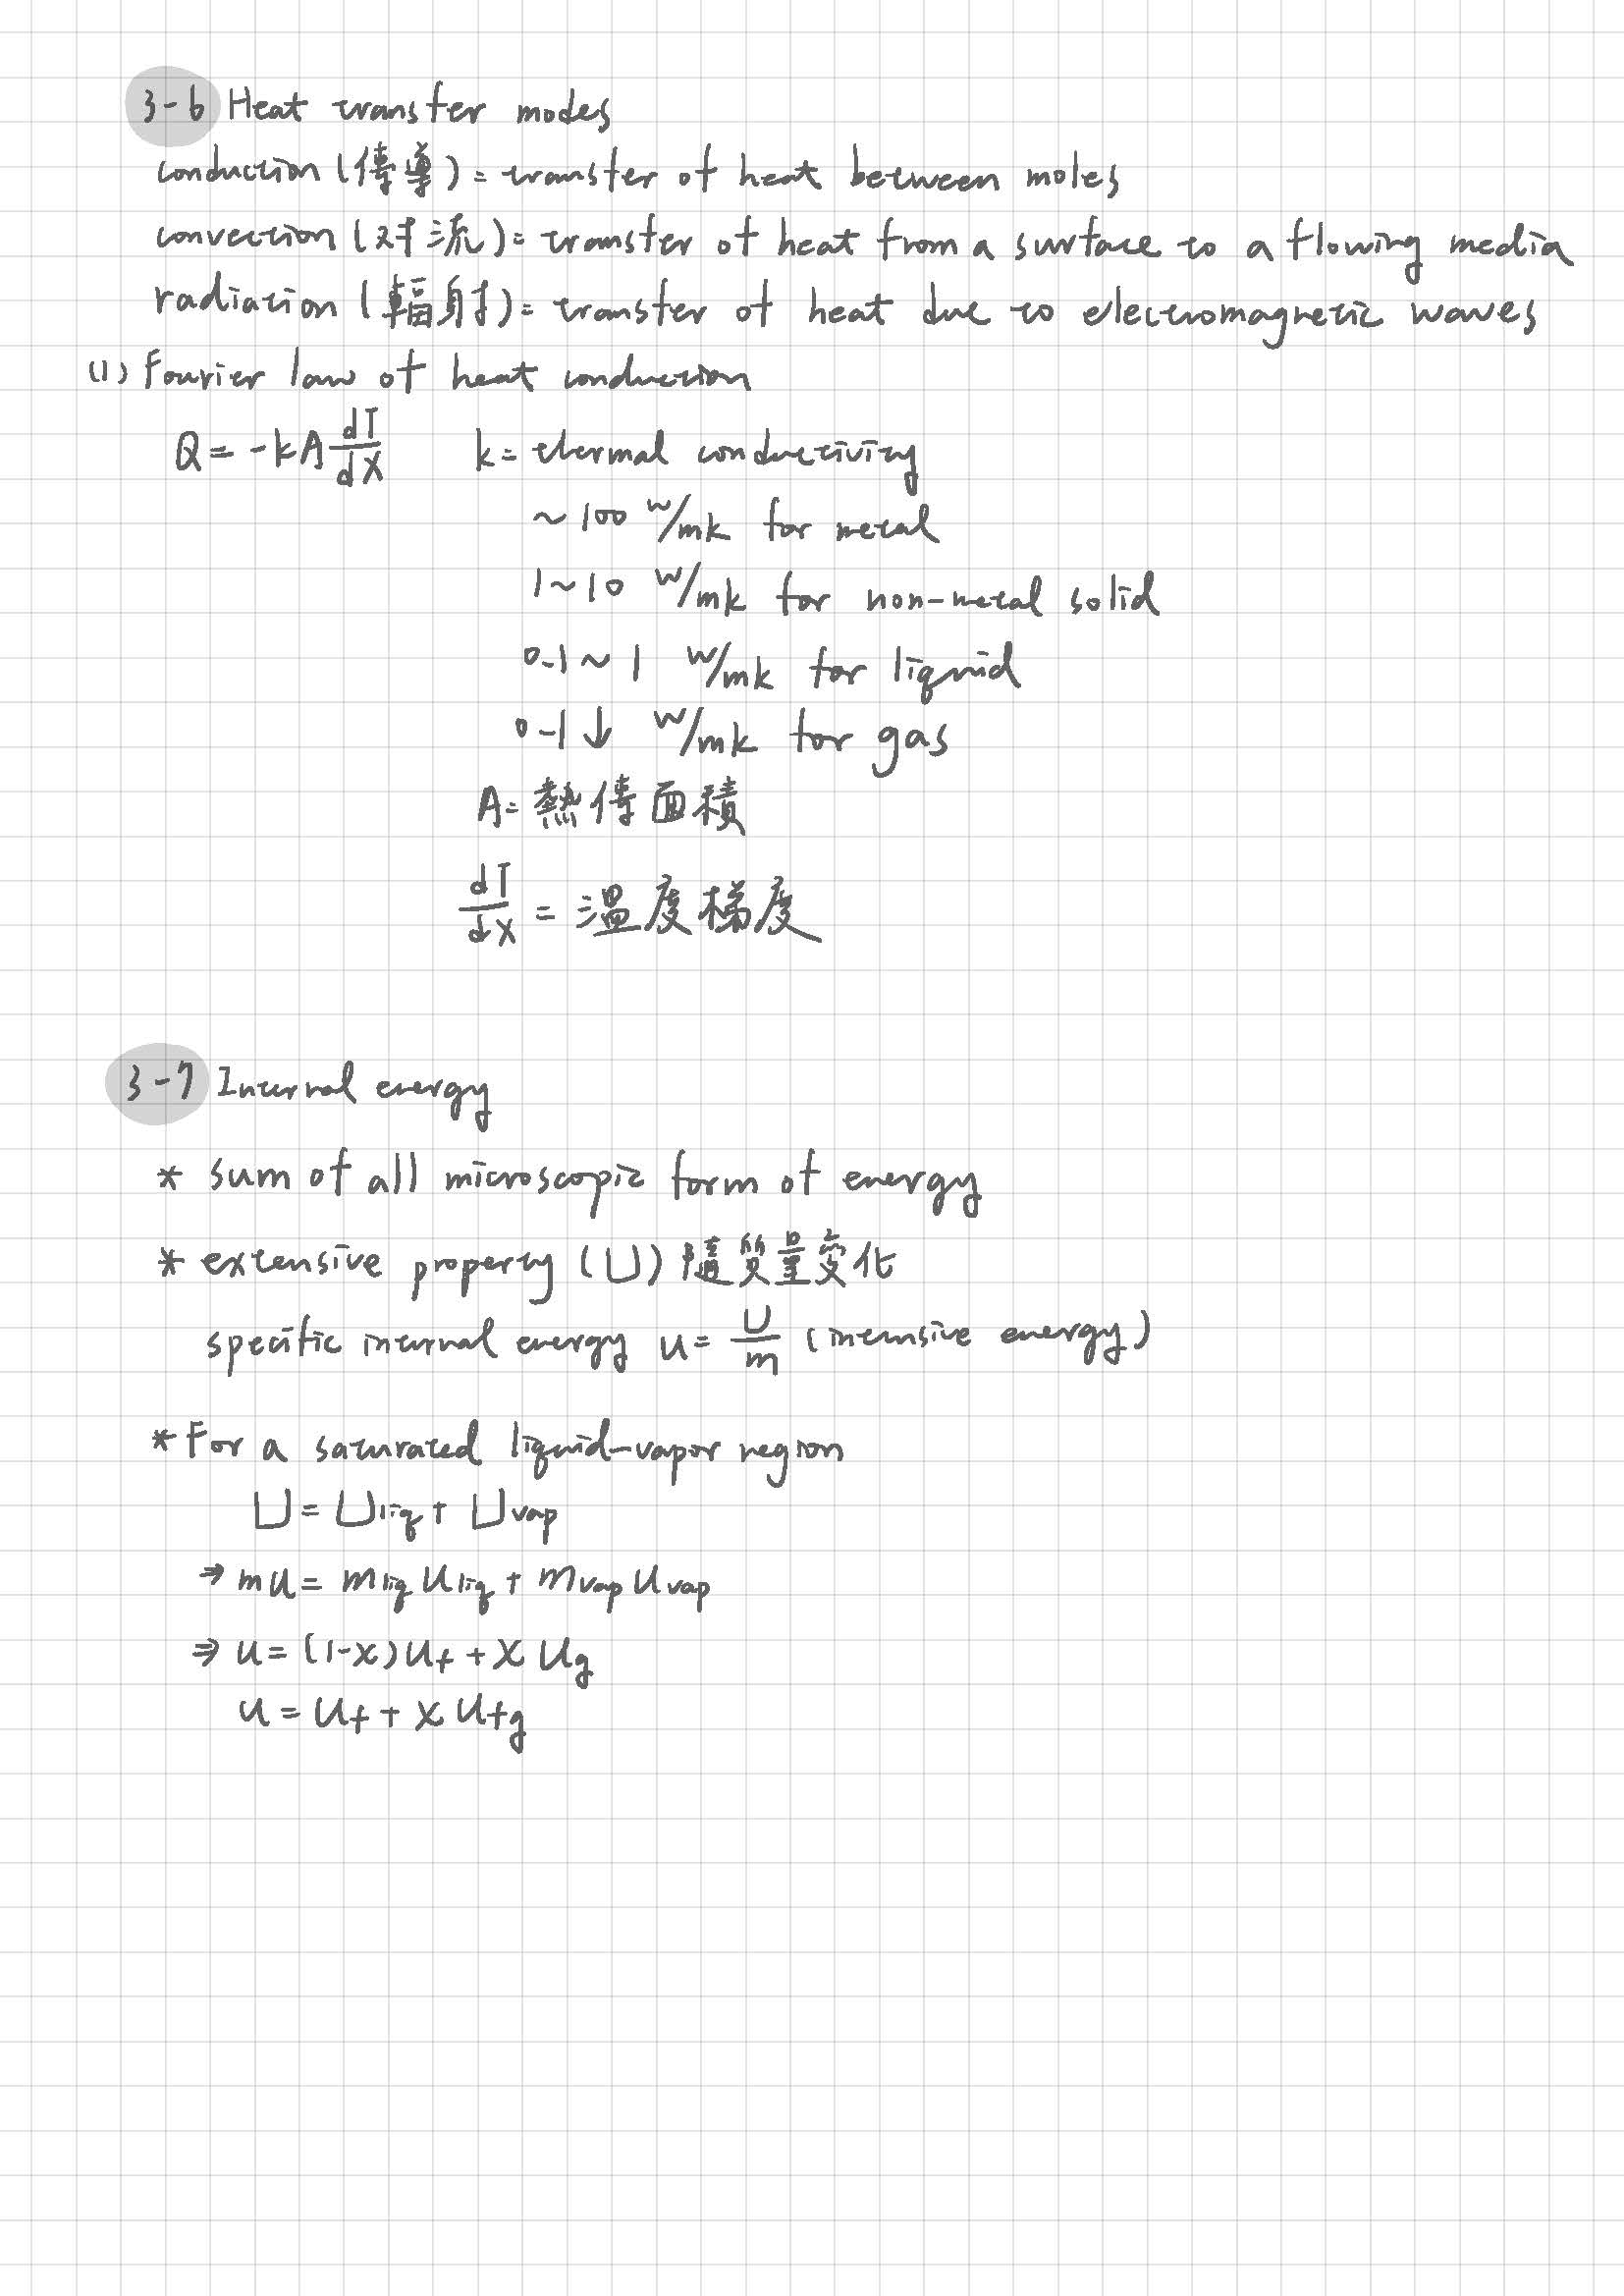 3-6 Heat transfer modes
conduction (傳導) = transfer of heat between moles
convection (对流) = transfer of heat from a surface to a flowing media
radiation (輻射) = transfer of heat due to electromagnetic waves
(1) Fourier law of heat conduction
Q = -kA dT/dx k = thermal conductivity
~100 W/mk for metal
1~10 W/mk for non-metal solid
0.1~1 W/mk for liquid
0.1↓ W/mk for gas
A = 熱傳面積
dT/dx = 溫度梯度
3-7 Internal energy
* sum of all microscopic form of energy
* extensive property (U) 隨質量變化
specific internal energy u = U/m (intensive energy)
* For a saturated liquid-vapor region
U = Uliq + Uvap
⇒ mu = mliq uliq + mvap uvap
⇒ u = (1-x)uf + x ug
u = uf + x ufg